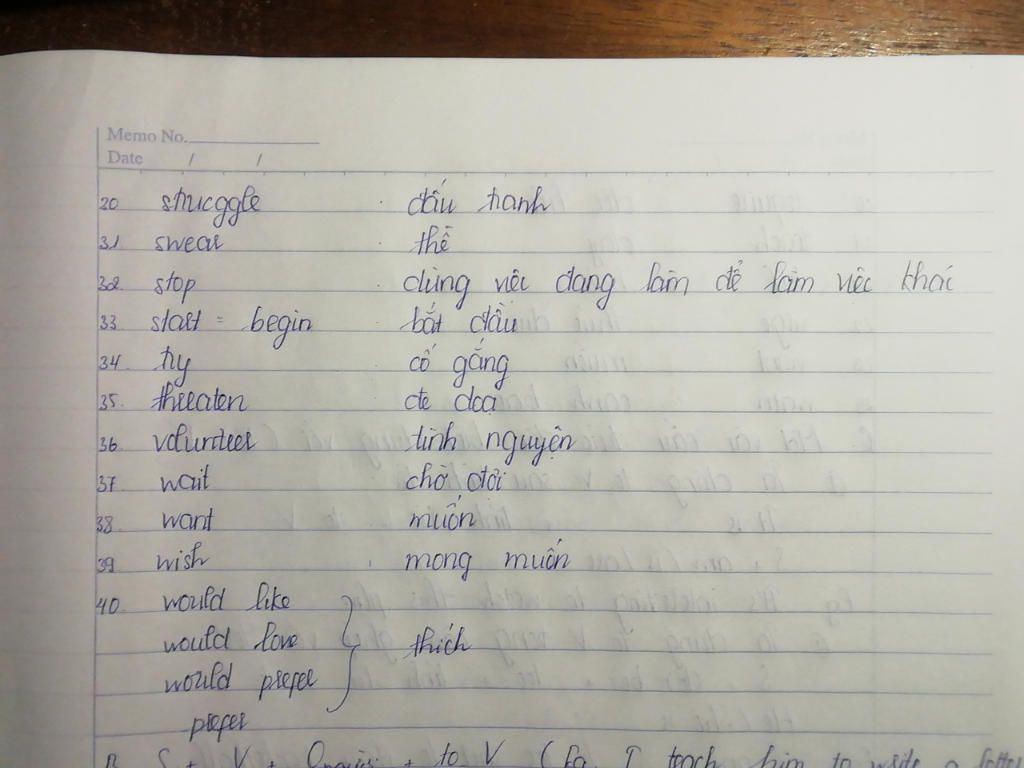 Memo No.
Date / /
20 struggle đấu tranh
31 swear thề
32 stop dừng việc đang làm để làm việc khác
33 start = begin bắt đầu
34 try cố gắng
35. threaten đe dọa
36 volunteer tình nguyện
37 wait chờ đợi
38 want muốn
39 wish mong muốn
40. would like
would love thích
would prefer
prefer
B. S + V + + to V ( Eg. I teach him to write a letter